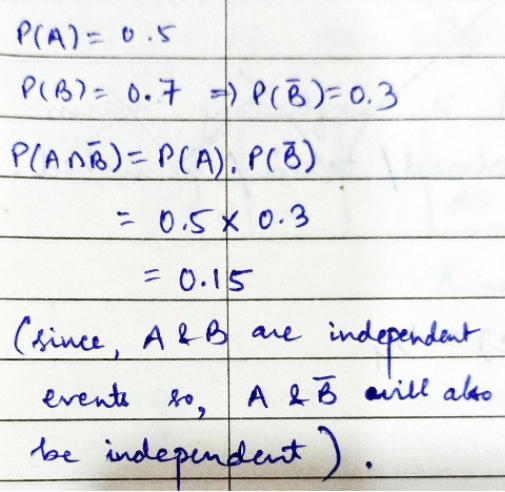 P(A) = 0.5
P(B) = 0.7 ⇒ P(B̄) = 0.3
P(A∩B̄) = P(A). P(B̄)
= 0.5 × 0.3
= 0.15
(since, A & B are independent
events so, A & B̄ will also
be independent).